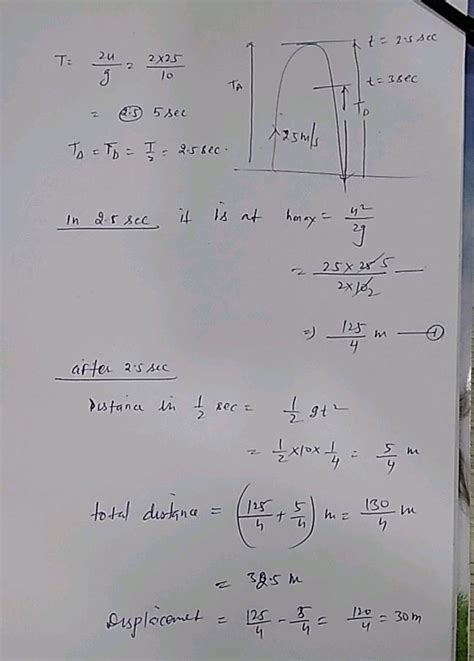 T = 2u/g = 2×25/10
= (2.5) 5 sec
T_A = T_D = T/2 = 2.5 sec.
t = 2.5 sec
t = 3 sec
T_A
T_D
25 m/s
In 2.5 sec it is at h_max = u²/2g
= 25 × 25 5 / 2 × 10 2
=> 125/4 m — ①
after 2.5 sec
Distance in 1/2 sec = 1/2 gt²
= 1/2 × 10 × 1/4 = 5/4 m
total distance = (125/4 + 5/4) m = 130/4 m
= 32.5 m
Displacemet = 125/4 - 5/4 = 120/4 = 30 m